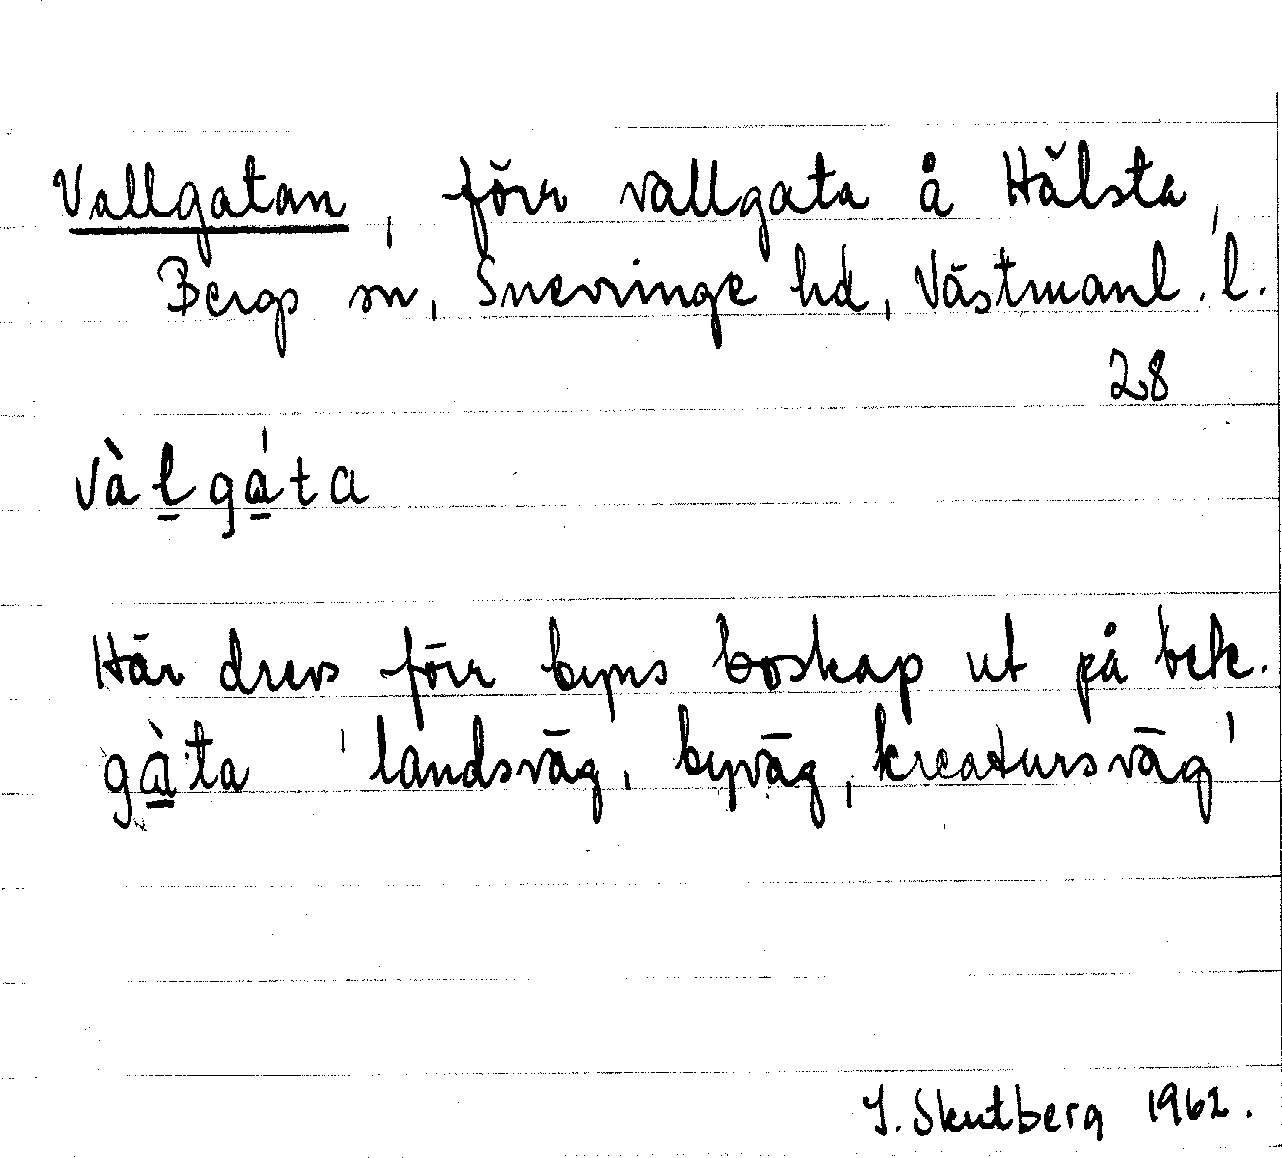 Vallgatan, förr vallgata å Hälsta,
Bergs sn, Snevringe hd, Västmanl. l.
28
vàl̲gá̲ta
Här drevs förr byns boskap ut på bete.
gà̲ta 'landsväg, byväg, kreatursväg'
I. Skutberg 1962.